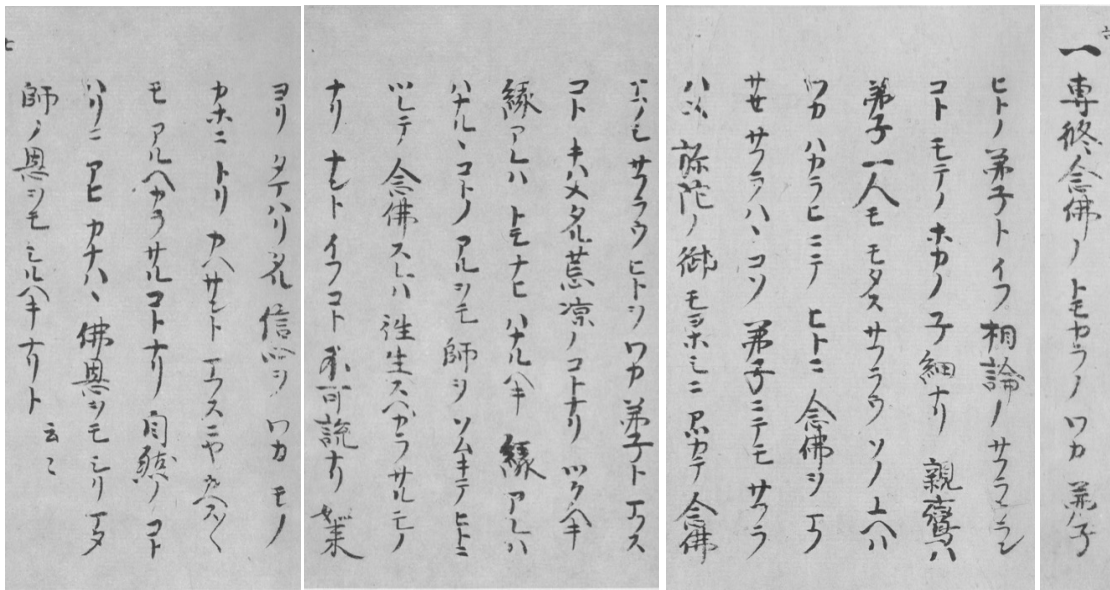 一専修念佛ノトモカラノワカ弟子
ヒトノ弟子トイフ相論ノサフラフラン
コトモテノホカノ子細ナリ 親鸞ハ
弟子一人モモタスサフラウソノユヘハ
ワカハカラヒニテヒトニ念佛ヲマフ
サセサフラハヽコソ弟子ニテモサフラ
ハメ弥陀ノ御モヨホシニアツカテ念佛
マフシサフラウヒトヲワカ弟子トマフス
コトキハメタル荒凉ノコトナリツクヘキ
縁アレハトモナヒハナルヘキ縁アレハ
ハナルヽコトノアルヲモ師ヲソムキテヒトニ
ツレテ念佛スレハ往生スヘカラサルモノ
ナリナントイフコト不可説ナリ如来
ヨリタマハリタル信心ヲワカモノ
カホニトリカヘサントマフスニヤカヘス〳〵
モアルヘカラサルコトナリ自然ノコト
ハリニアヒカナハヽ佛恩ヲモシリマタ
師ノ恩ヲモシルヘキナリト云々